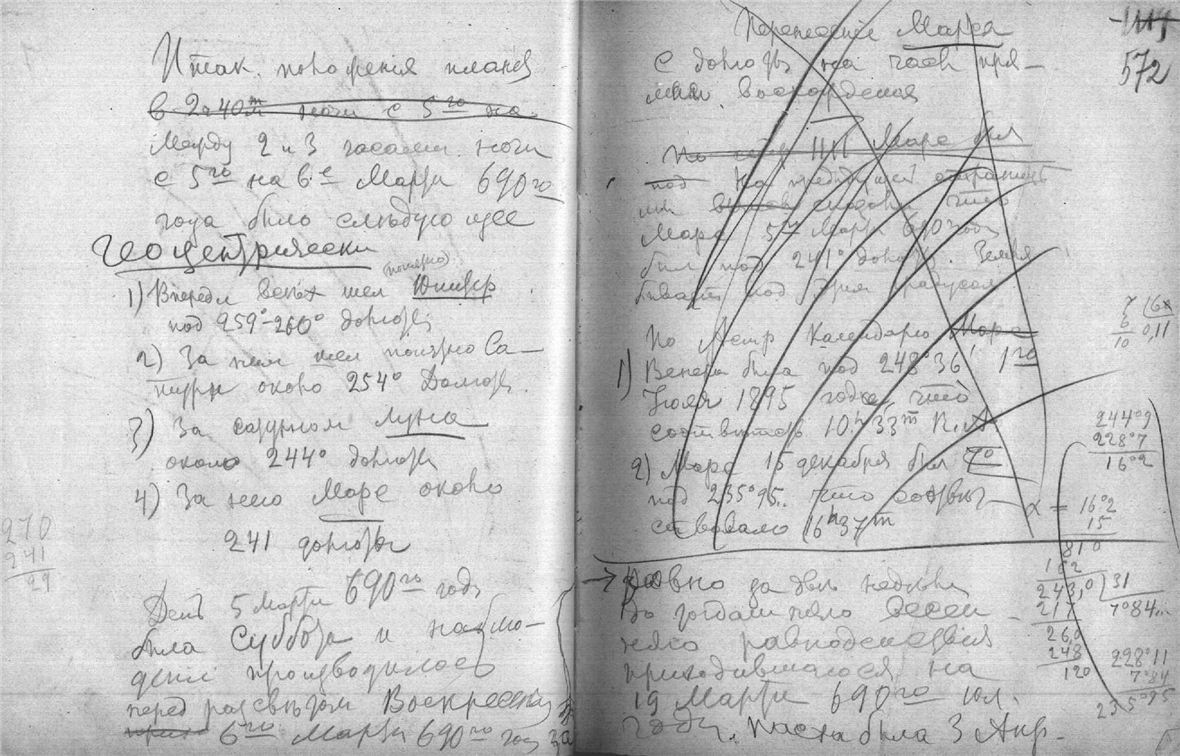 Итак положенія планет
в 2ч 40m ночи с 5го на
Между 2 и 3 часами ночи
с 5го на 6е Марта 690го
года было следующее
геоцентрически
1) Впереди всех шел Юпитер
под 259°-260° долготы
2) За ним шел попятно Са-
турн около 254° Долготы.
3) За Сатурном Луна
около 244° долготы
4) За нею Марс около
241 долготы
День 5 Марта 690го года
была Суббота и наблю-
дение производилось
перед разсветом Воскресенья
6го Марта 690го года за
270
241
29
1114
572
Перенесение Марса
с долготы на часы пря-
мых восхождения
По стр 1111 Марс был
под На предидущей странице
мы видели что
Марс 5го Марта 690 года
был под 241° долготы. Земля
бывает под
По Астр Календарю Марс
1) Венера была под 248°36' 1го
Июля 1895 года что
соответств 10h 33m R. A
2) Марс 15 декабря был
под 235°95. что соответ-
ствовало 16h37m
0,11
244°9
228°7
16°2
α = 16°2
15
810
162
243,0 31
217 7°84
26,0
248
120
228°11
7°84
235°95
→ Ровно за две недели
до тогдашняго весен-
няго равноденствия
приходившагося на
19 Марта 690го юл.
года. Пасха была 3 Апр.